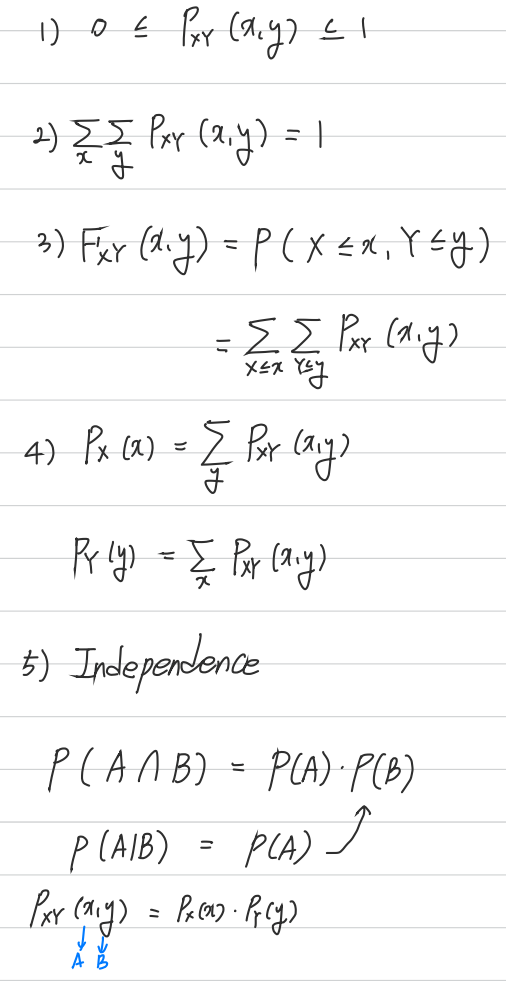 1) 0 ≤ P_XY (x,y) ≤ 1
2) Σ_x Σ_y P_XY (x,y) = 1
3) F_XY (x,y) = P( X ≤ x, Y ≤ y)
= Σ_X≤x Σ_Y≤y P_XY (x,y)
4) P_X (x) = Σ_y P_XY (x,y)
P_Y (y) = Σ_x P_XY (x,y)
5) Independence
P( A ∩ B) = P(A) · P(B)
P (A|B) = P(A)
P_XY (x,y) = P_X (x) · P_Y (y)
A B